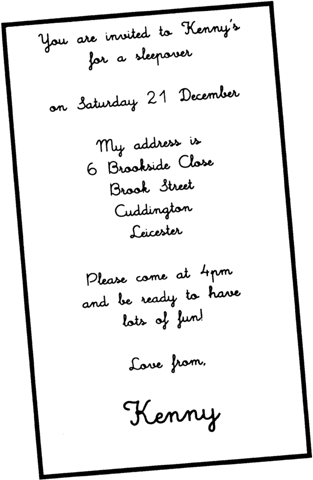 You are invited to Kenny's
for a sleepover
on Saturday 21 December
My address is
6 Brookside Close
Brook Street
Cuddington
Leicester
Please come at 4pm
and be ready to have
lots of fun!
Love from,
Kenny